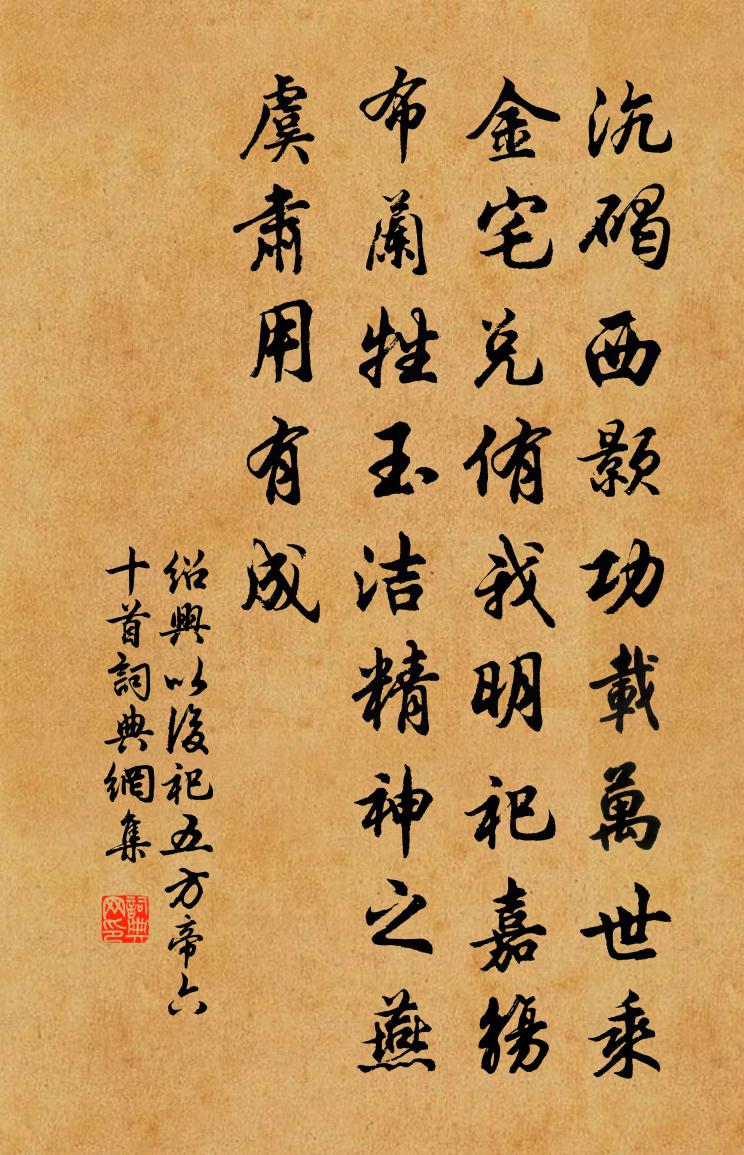 沆碣西顥功載萬世乘
金宅兌侑我明祀嘉觴
布蘭牲玉洁精神之燕
虞肅用有成
紹興以後祀五方帝六
十首詞典網集
詞典
网印